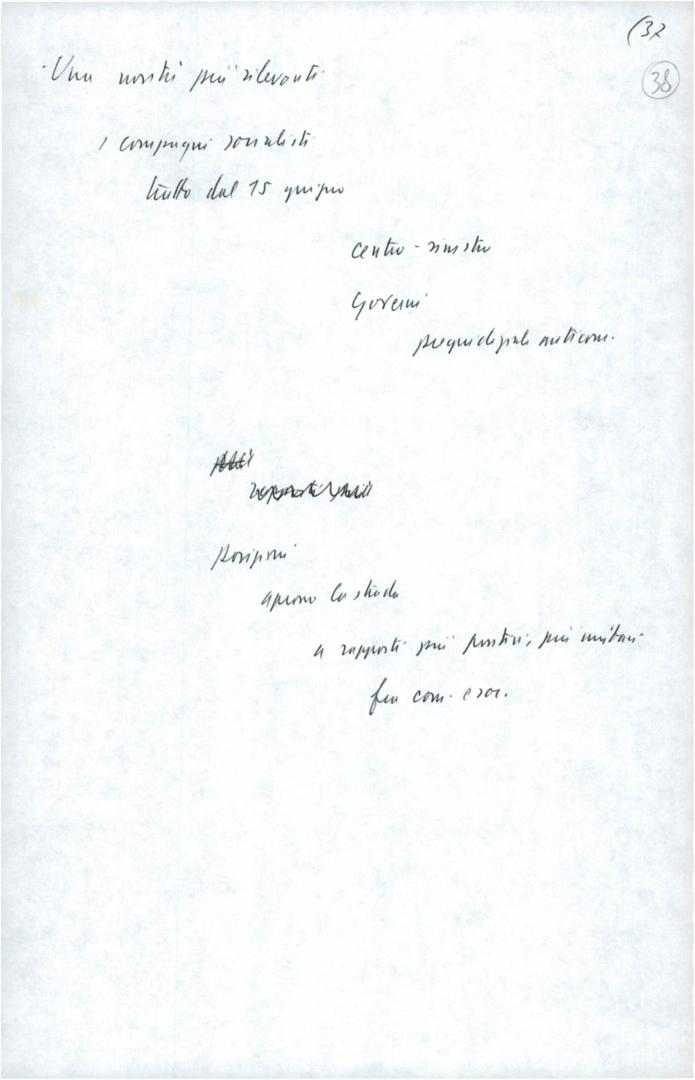 (37
38
Una novità più rilevante
i compagni socialisti
tratto dal 15 giugno
centro-sinistra
Governi
pregiudiziale anticom.
posizioni
aprono la strada
a rapporti più positivi, più unitari
fra com. e soc.